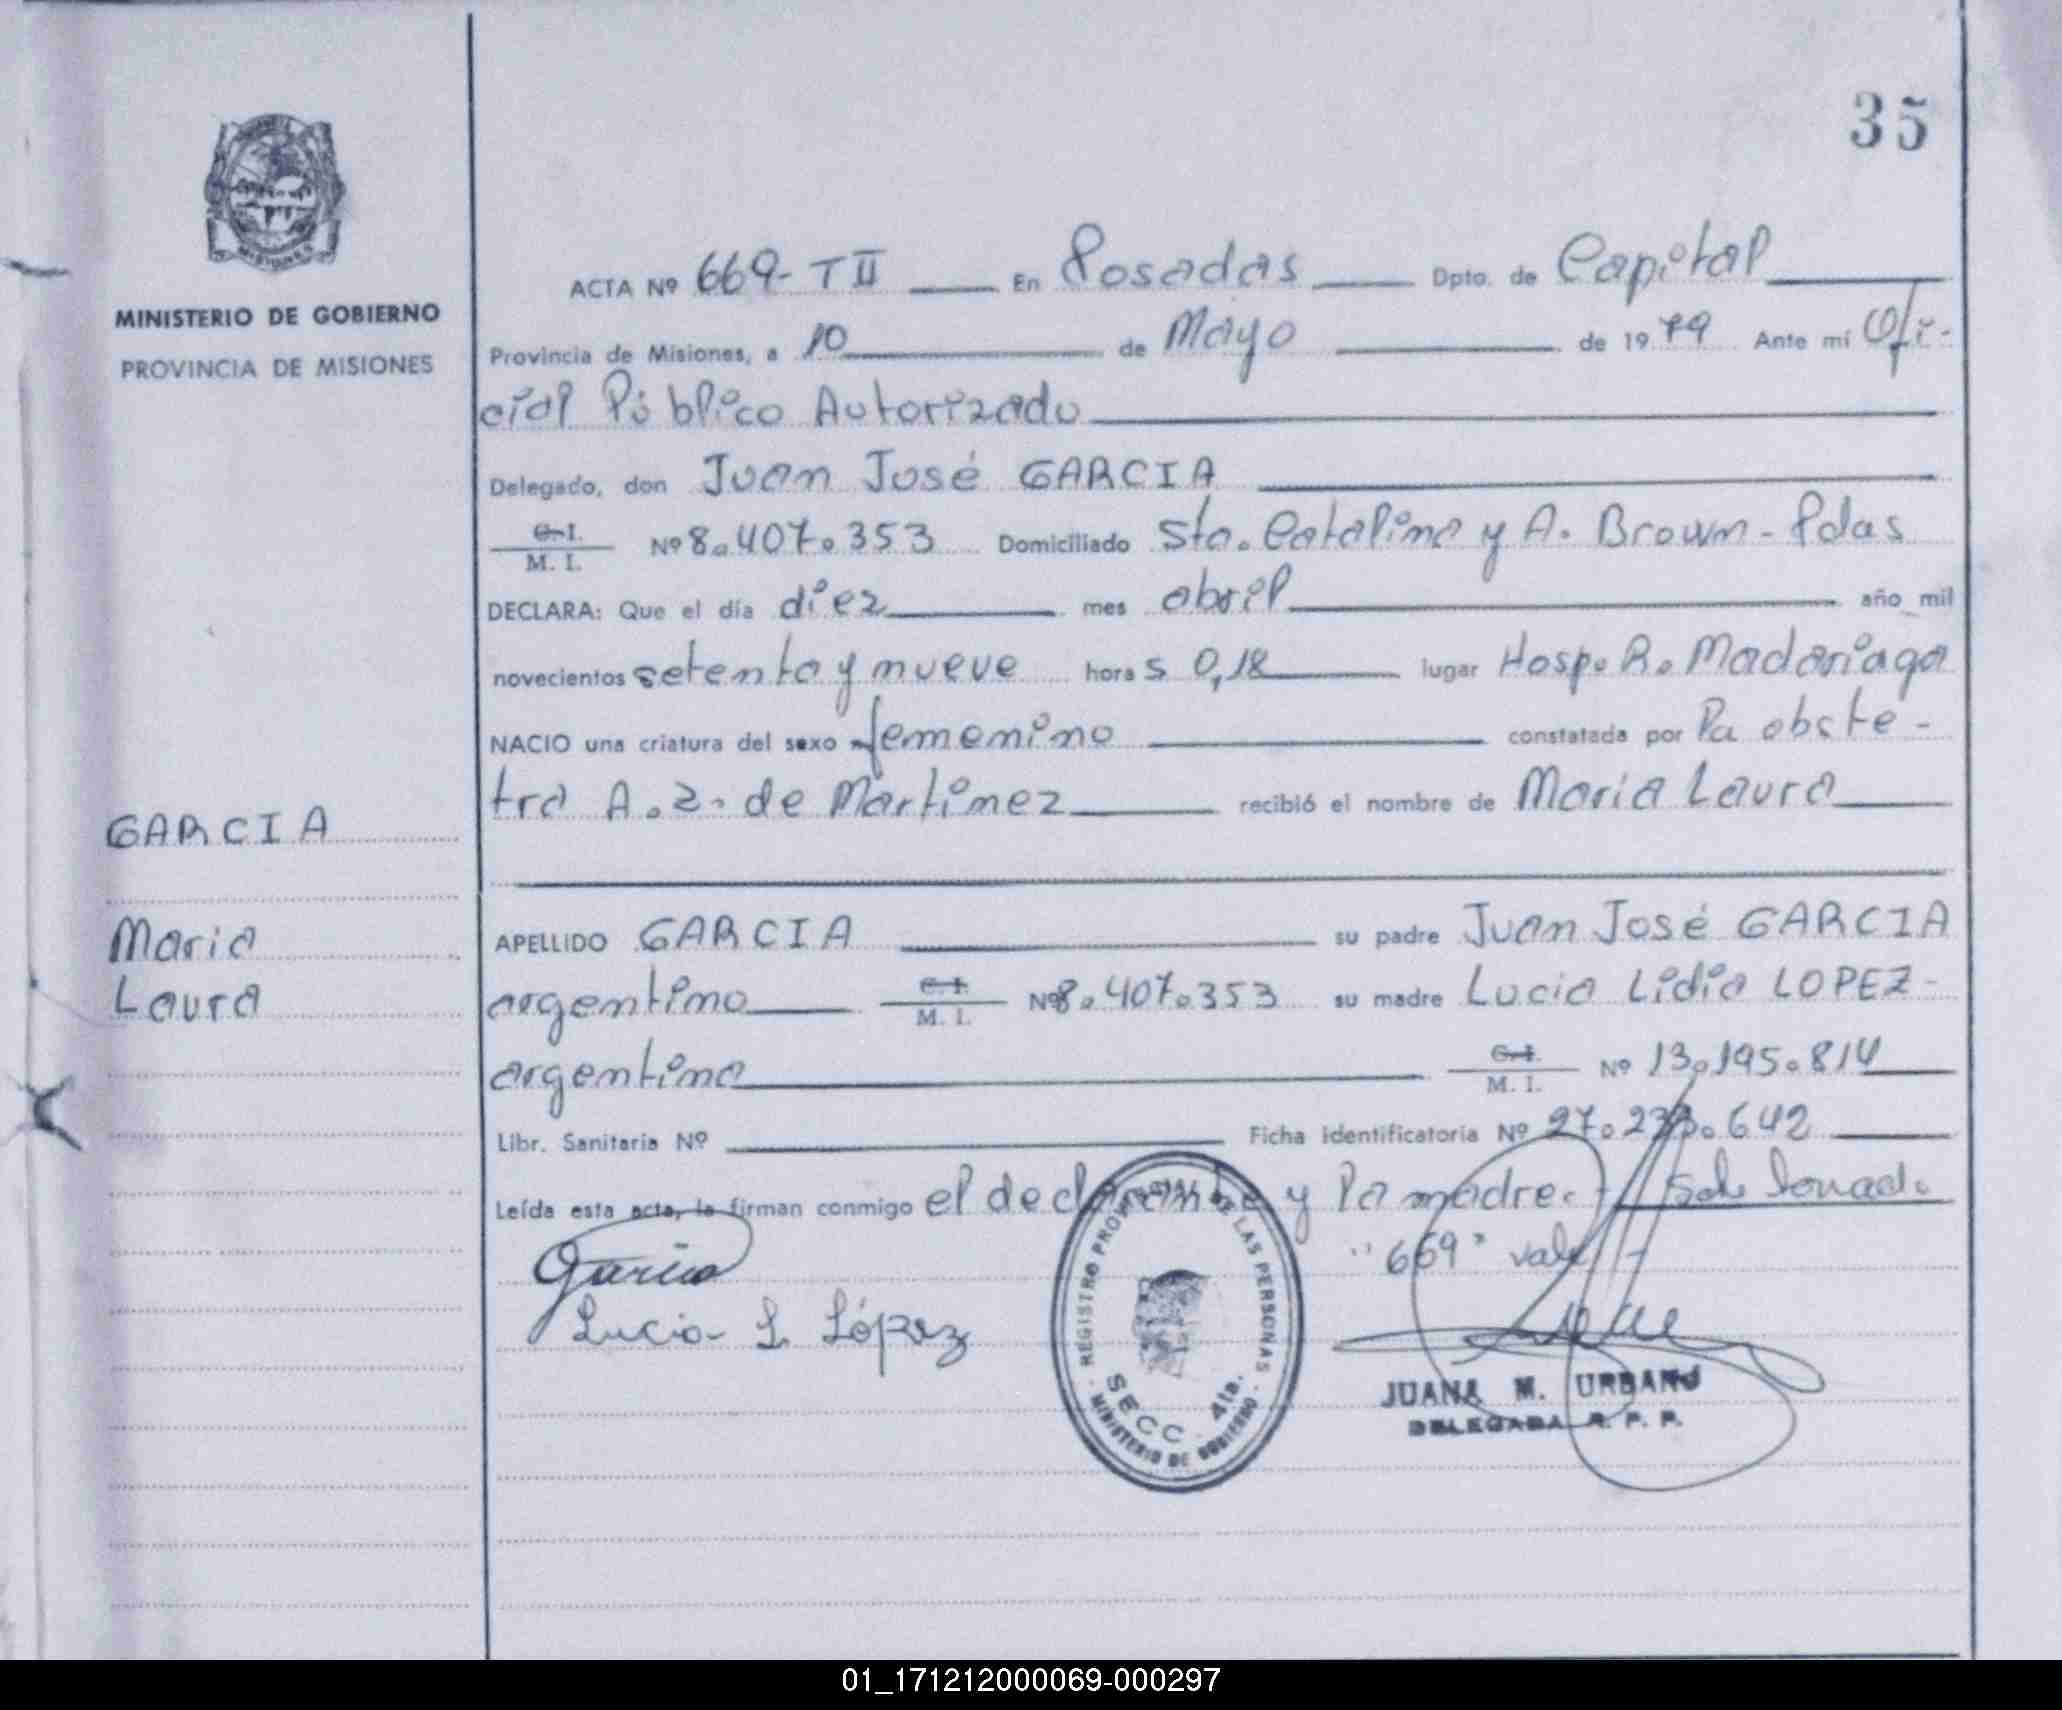 35
MINISTERIO DE GOBIERNO
PROVINCIA DE MISIONES
ACTA Nº 669- T II En Posadas Dpto. de Capital
Provincia de Misiones, a 10 de Mayo de 1979 Ante mí Ofi-
cial Público Autorizado
Delegado, don Juan José GARCIA
C. I.
M. I. Nº 8.407.353 Domiciliado Sta. Catalina y A. Brown - Pdas
DECLARA: Que el día diez mes abril año mil
novecientos setenta y nueve hora s 0,18 lugar Hosp. R. Madariaga
NACIO una criatura del sexo femenino constatada por la obste-
tra A. Z. de Martinez recibió el nombre de Maria Laura
GARCIA
Maria
Laura
APELLIDO GARCIA su padre Juan José GARCIA
argentino C. I.
M. I. Nº 8.407.353 su madre Lucia Lidia LOPEZ-
argentina C. I.
M. I. Nº 13.195.814
Libr. Sanitaria Nº Ficha identificatoria Nº 27.233.642
Leída esta acta, la firman conmigo el declarante y la madre.-
"669" vale-
Garcia
Lucia L. López
REGISTRO PROVINCIAL DE LAS PERSONAS
SECC. 4ta.
MINISTERIO DE GOBIERNO
JUANA M. URBANO
DELEGADA R. P. P.
01_171212000069-000297